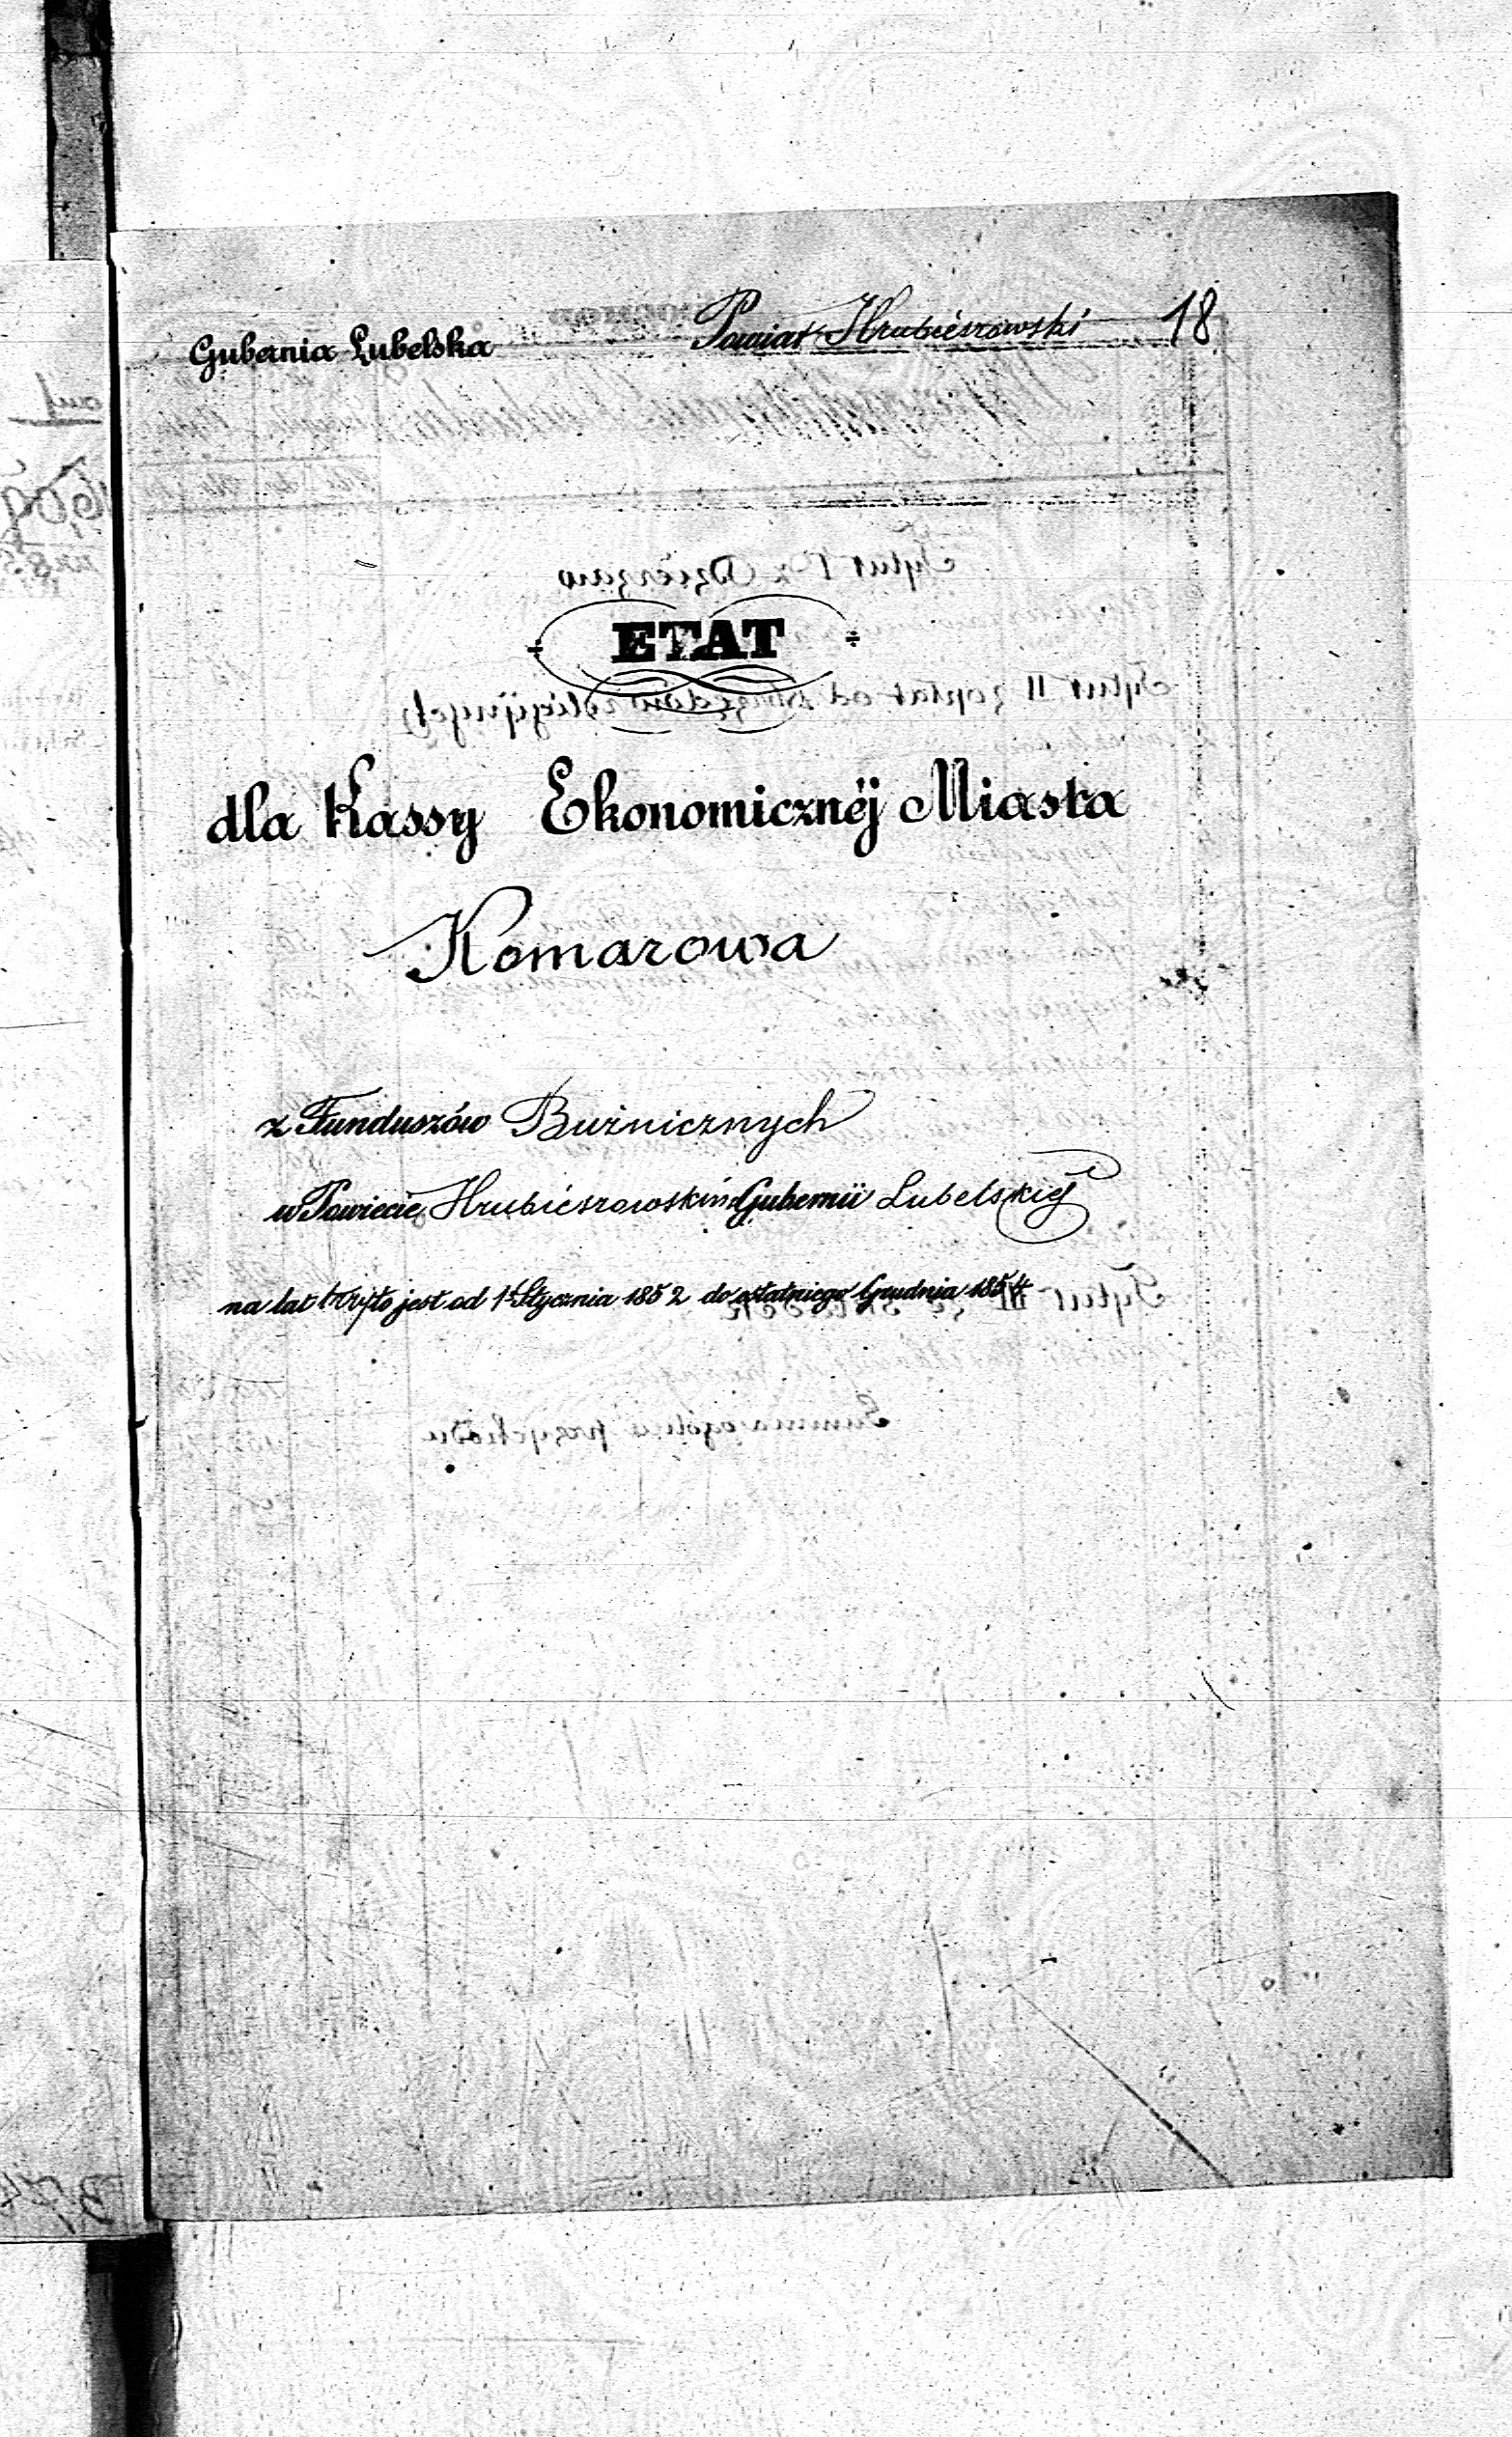 Gubernia Lubelska Powiat Hrubieszowski 18
ETAT
dla Kassy Ekonomicznéj Miasta
Komarowa
z Funduszów Bużnicznych
w Powiecie Hrubieszowskim Gubernii Lubelskiéj
na lat trzy to jest od 1 Stycznia 1852 do ostatniego Grudnia 1854